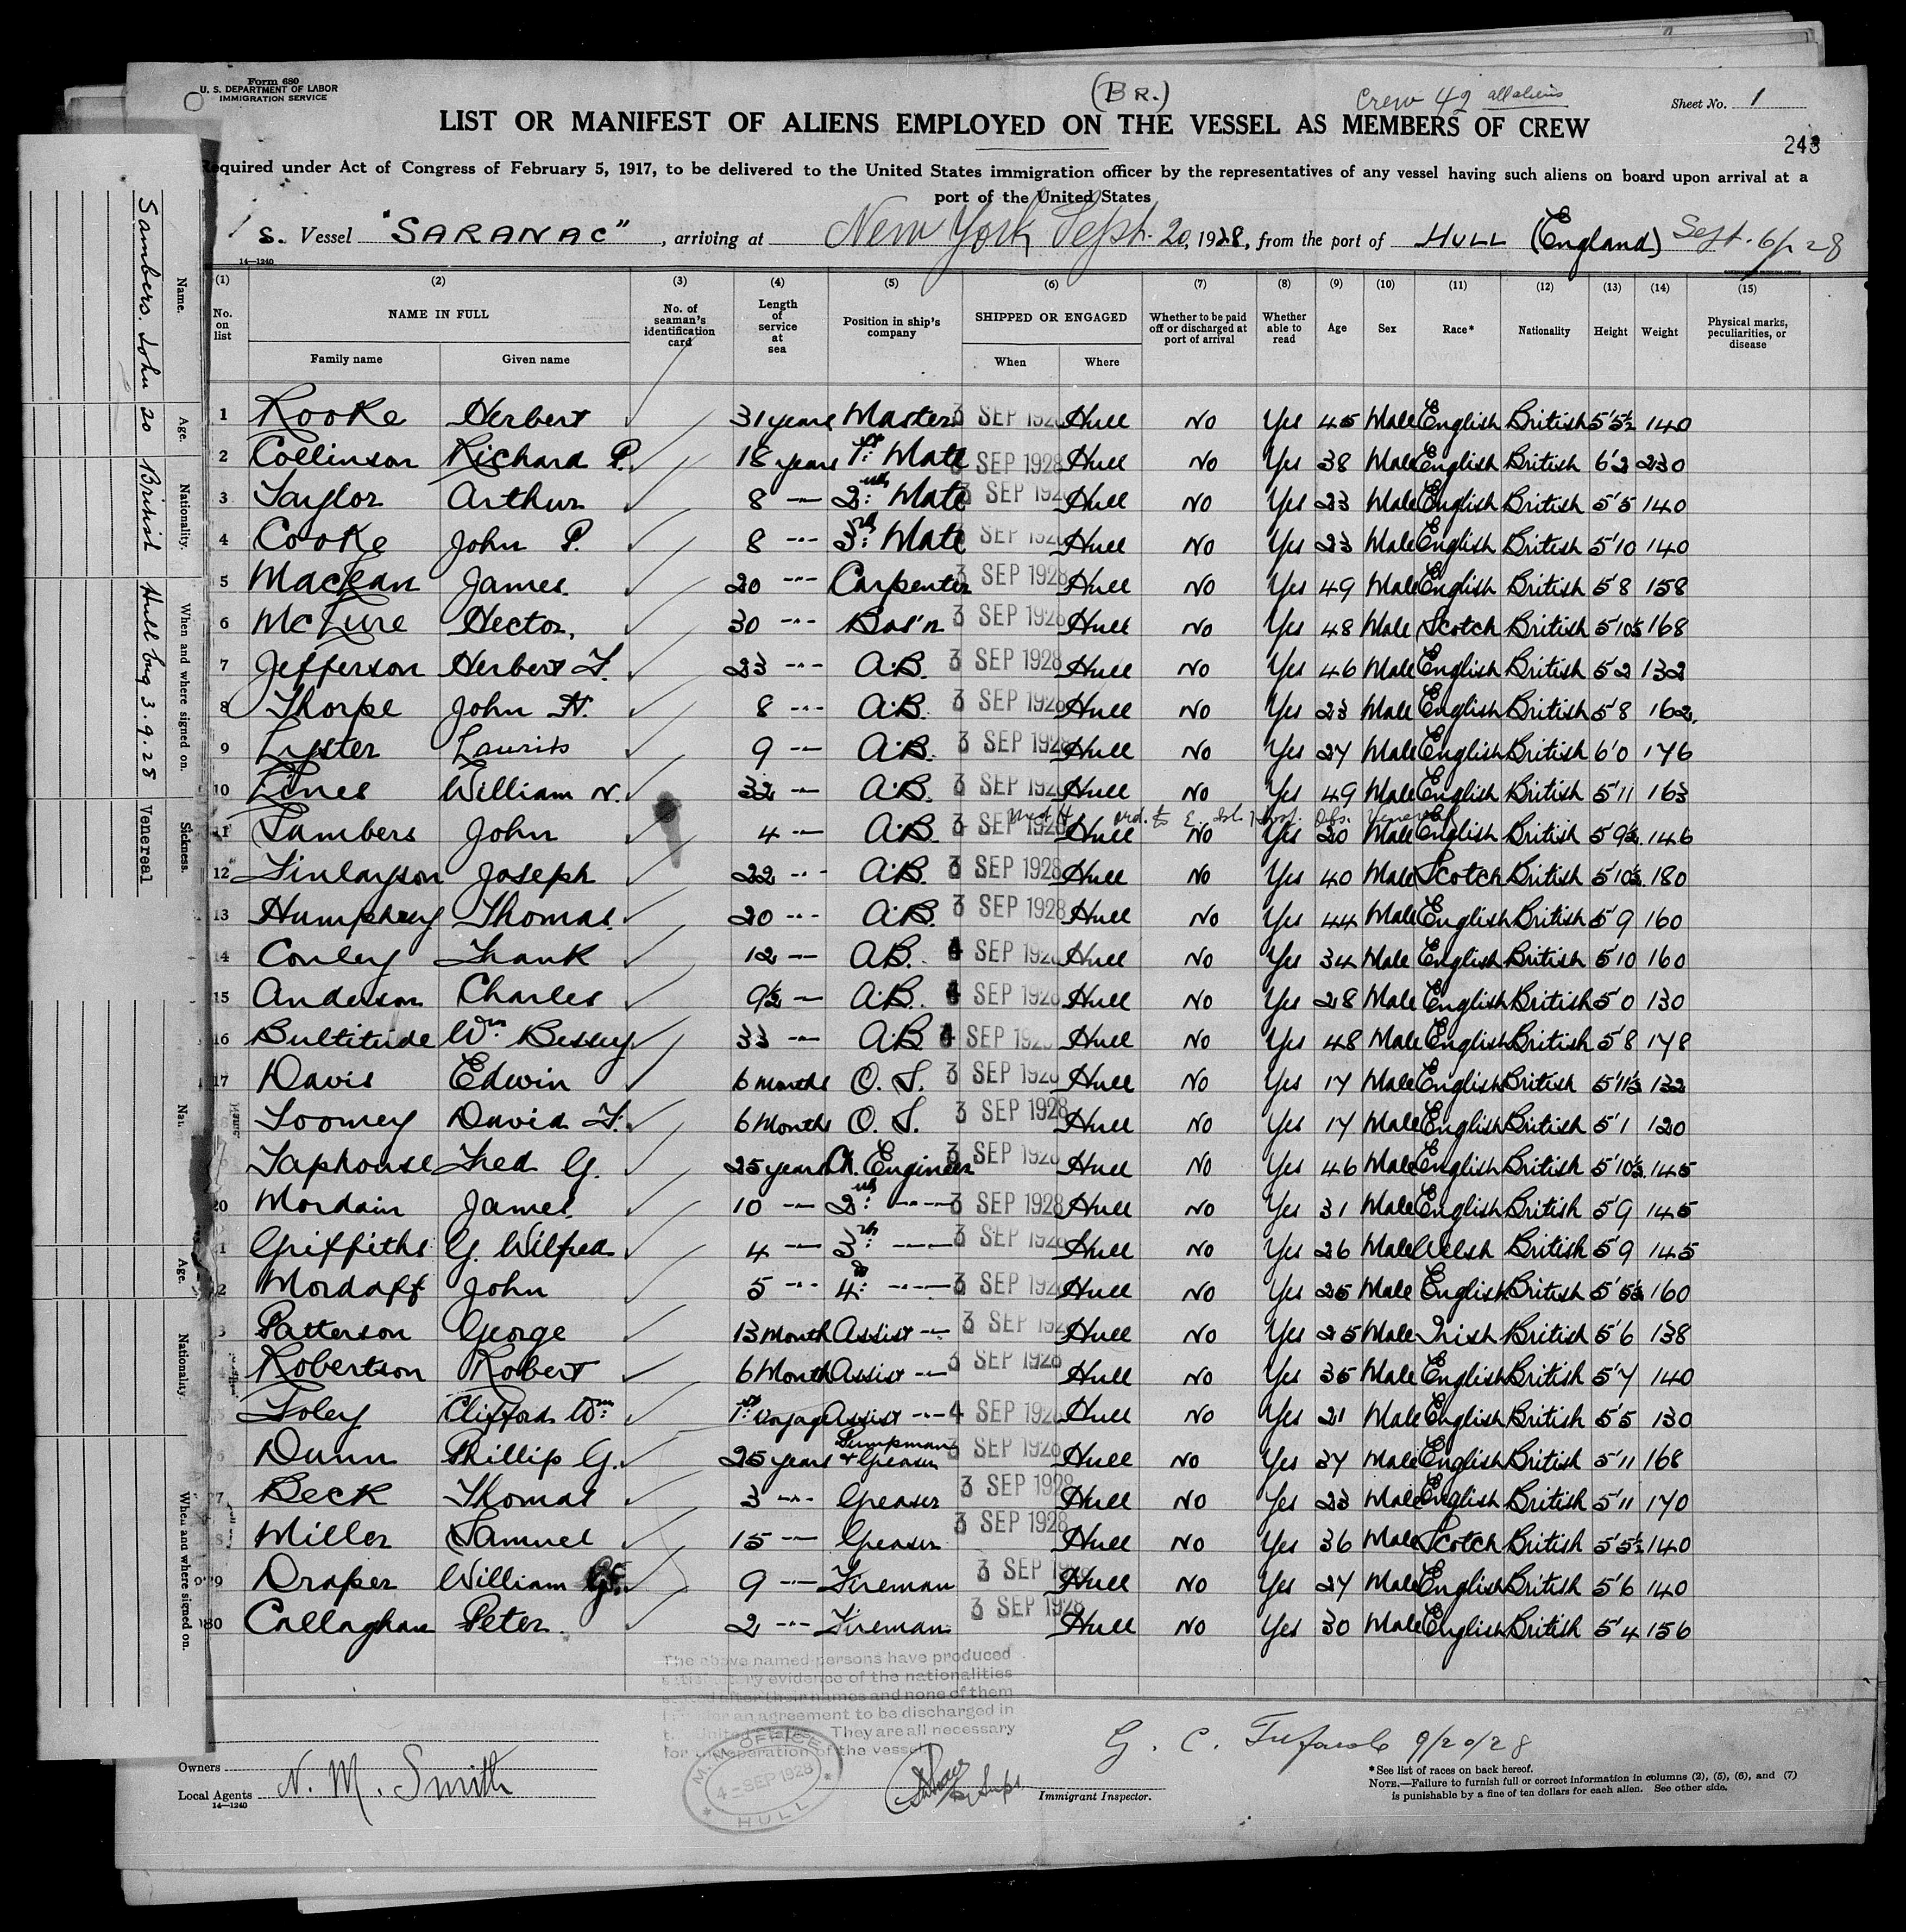 Form 680
U. S. DEPARTMENT OF LABOR
IMMIGRATION SERVICE
(BR.)
Crew 42 all aliens
Sheet No. 1
243
LIST OR MANIFEST OF ALIENS EMPLOYED ON THE VESSEL AS MEMBERS OF CREW
Required under Act of Congress of February 5, 1917, to be delivered to the United States immigration officer by the representatives of any vessel having such aliens on board upon arrival at a
port of the United States
S. Vessel "SARANAC", arriving at New York Sept. 20, 1928, from the port of HULL (England) Sept. 6/28
14—1240
(1) (2) (3) (4) (5) (6) (7) (8) (9) (10) (11) (12) (13) (14) (15)
No. on list NAME IN FULL Family name Given name No. of seaman's identification card Length of service at sea Position in ship's company SHIPPED OR ENGAGED When Where Whether to be paid off or discharged at port of arrival Whether able to read Age Sex Race* Nationality Height Weight Physical marks, peculiarities, or disease
1 Rooke Herbert 31 years Master 3 SEP 1928 Hull No Yes 45 Male English British 5'5½ 140
2 Collinson Richard P. 18 years 1st Mate 3 SEP 1928 Hull No Yes 38 Male English British 6'2 230
3 Taylor Arthur 8 — 2nd Mate 3 SEP 1928 Hull No Yes 23 Male English British 5'5 140
4 Cooke John P. 8 --- 3rd Mate SEP 1928 Hull No Yes 23 Male English British 5'10 140
5 MacLean James. 20 --- Carpenter 3 SEP 1928 Hull No Yes 49 Male English British 5'8 158
6 McLure Hector. 30 --- Bos'n 3 SEP 1928 Hull No Yes 48 Male Scotch British 5'10½ 168
7 Jefferson Herbert F. 23 --- A.B. 3 SEP 1928 Hull No Yes 46 Male English British 5'2 132
8 Thorpe John H. 8 --- A.B. 3 SEP 1928 Hull No Yes 23 Male English British 5'8 162
9 Lyster Laurits 9 — A.B. 3 SEP 1928 Hull No Yes 27 Male English British 6'0 176
10 Lines William N. 32 — A.B. 3 SEP 1928 Hull No Yes 49 Male English British 5'11 163
ord. to E. Isl. Hosp. Obs. Venereal
11 Sambers John 4 — A.B. 3 SEP 1928 Hull No Yes 20 Male English British 5'9½ 146
12 Finlayson Joseph 22 --- A.B. 3 SEP 1928 Hull No Yes 40 Male Scotch British 5'10½ 180
13 Humphrey Thomas. 20 --- A.B. 3 SEP 1928 Hull No Yes 44 Male English British 5'9 160
14 Conley Frank 12 — A.B. 4 SEP 1928 Hull No Yes 34 Male English British 5'10 160
15 Anderson Charles 9½ — A.B. 4 SEP 1928 Hull No Yes 28 Male English British 5'0 130
16 Bultitude Wm Bessey 33 — A.B. 4 SEP 1928 Hull No Yes 48 Male English British 5'8 178
17 Davis Edwin 6 Months O. S. 3 SEP 1928 Hull No Yes 17 Male English British 5'11½ 132
Toomey David F. 6 Months O. S. 3 SEP 1928 Hull No Yes 17 Male English British 5'1 120
Taphouse Fred G. 25 years Ch. Engineer 3 SEP 1928 Hull No Yes 46 Male English British 5'10½ 145
20 Mordain James. 10 — 2nd --- 3 SEP 1928 Hull No Yes 31 Male English British 5'9 145
1 Griffiths G. Wilfred 4 — 3rd --- 3 SEP 1928 Hull No Yes 26 Male Welsh British 5'9 145
2 Mordaff John 5 --- 4th --- 3 SEP 1928 Hull No Yes 25 Male English British 5'5½ 160
3 Patterson George 13 Month Assist — 3 SEP 1928 Hull No Yes 25 Male Irish British 5'6 138
Robertson Robert 6 Month Assist — 3 SEP 1928 Hull No Yes 35 Male English British 5'7 140
Foley Clifford Wm 1st Voyage Assist — 4 SEP 1928 Hull No Yes 21 Male English British 5'5 130
6 Dunn Phillip G. 25 years Pumpman & Greaser 3 SEP 1928 Hull No Yes 37 Male English British 5'11 168
27 Beck Thomas 3 --- Greaser 3 SEP 1928 Hull No Yes 23 Male English British 5'11 170
8 Miller Samuel 15 — Greaser 3 SEP 1928 Hull No Yes 36 Male Scotch British 5'5½ 140
29 Draper William 9 — Fireman 3 SEP 19 Hull No Yes 27 Male English British 5'6 140
30 Callaghan Peter 2 --- Fireman 3 SEP 1928 Hull No Yes 30 Male English British 5'4 156
The above named persons have produced
satisfactory evidence of the nationalities
stated after their names and none of them
is under an agreement to be discharged in
the United States. They are all necessary
for the operation of the vessel.
M. M. OFFICE
4 - SEP 1928
HULL
Owners
Local Agents N. M. Smith
14—1240
Supt
Immigrant Inspector.
G. C. 9/20/28
*See list of races on back hereof.
NOTE.—Failure to furnish full or correct information in columns (2), (5), (6), and (7)
is punishable by a fine of ten dollars for each alien. See other side.
Name. Age. Nationality. When and where signed on. Sickness.
Sambers. John 20 British Hull Eng 3.9.28 Venereal
Name. Age. Nationality. When and where signed on.